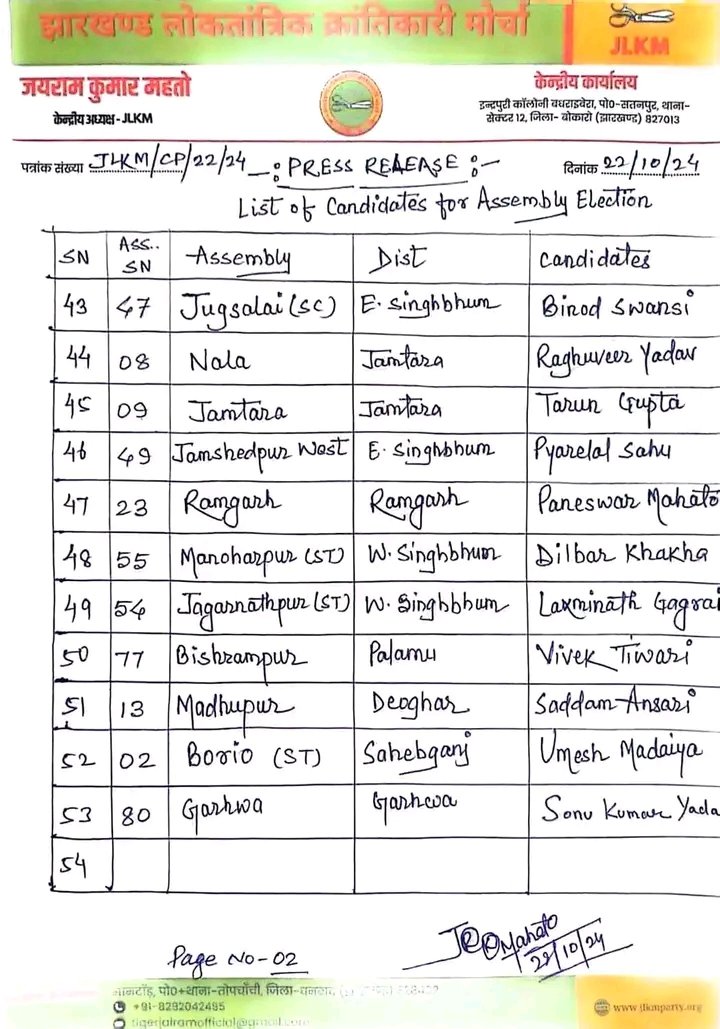 झारखण्ड लोकतांत्रिक क्रांतिकारी मोर्चा
JLKM
जयराम कुमार महतो
केन्द्रीय अध्यक्ष - JLKM
केन्द्रीय कार्यालय
इन्द्रपुरी कॉलोनी बधराइबेरा, पो0-सतनपुर, थाना-
सेक्टर 12, जिला- बोकारो (झारखण्ड) 827013
पत्रांक संख्या JLKM/CP/22/24 -: PRESS RELEASE :- दिनांक 22/10/24
List of Candidates for Assembly Election
SN Ass.. SN Assembly Dist Candidates
43 47 Jugsalai (SC) E. Singhbhum Binod Swansi
44 08 Nala Jamtara Raghuveer Yadav
45 09 Jamtara Jamtara Tarun Gupta
46 49 Jamshedpur West E. Singhbhum Pyarelal Sahu
47 23 Ramgarh Ramgarh Paneswar Mahato
48 55 Manoharpur (ST) W. Singhbhum Dilbar Khakha
49 54 Jagarnathpur (ST) W. Singhbhum Laxminath Gagrai
50 77 Bishrampur Palamu Vivek Tiwari
51 13 Madhupur Deoghar Saddam Ansari
52 02 Borio (ST) Sahebganj Umesh Madaiya
53 80 Garhwa Garhwa Sonu Kumar Yada
54
Page No-02
Mahato
22/10/24
पो0+थाना-तोपचाँची, जिला-धनबाद,
+91-8292042495
tigerjairamofficial@gmail.com
www.jlkmparty.org